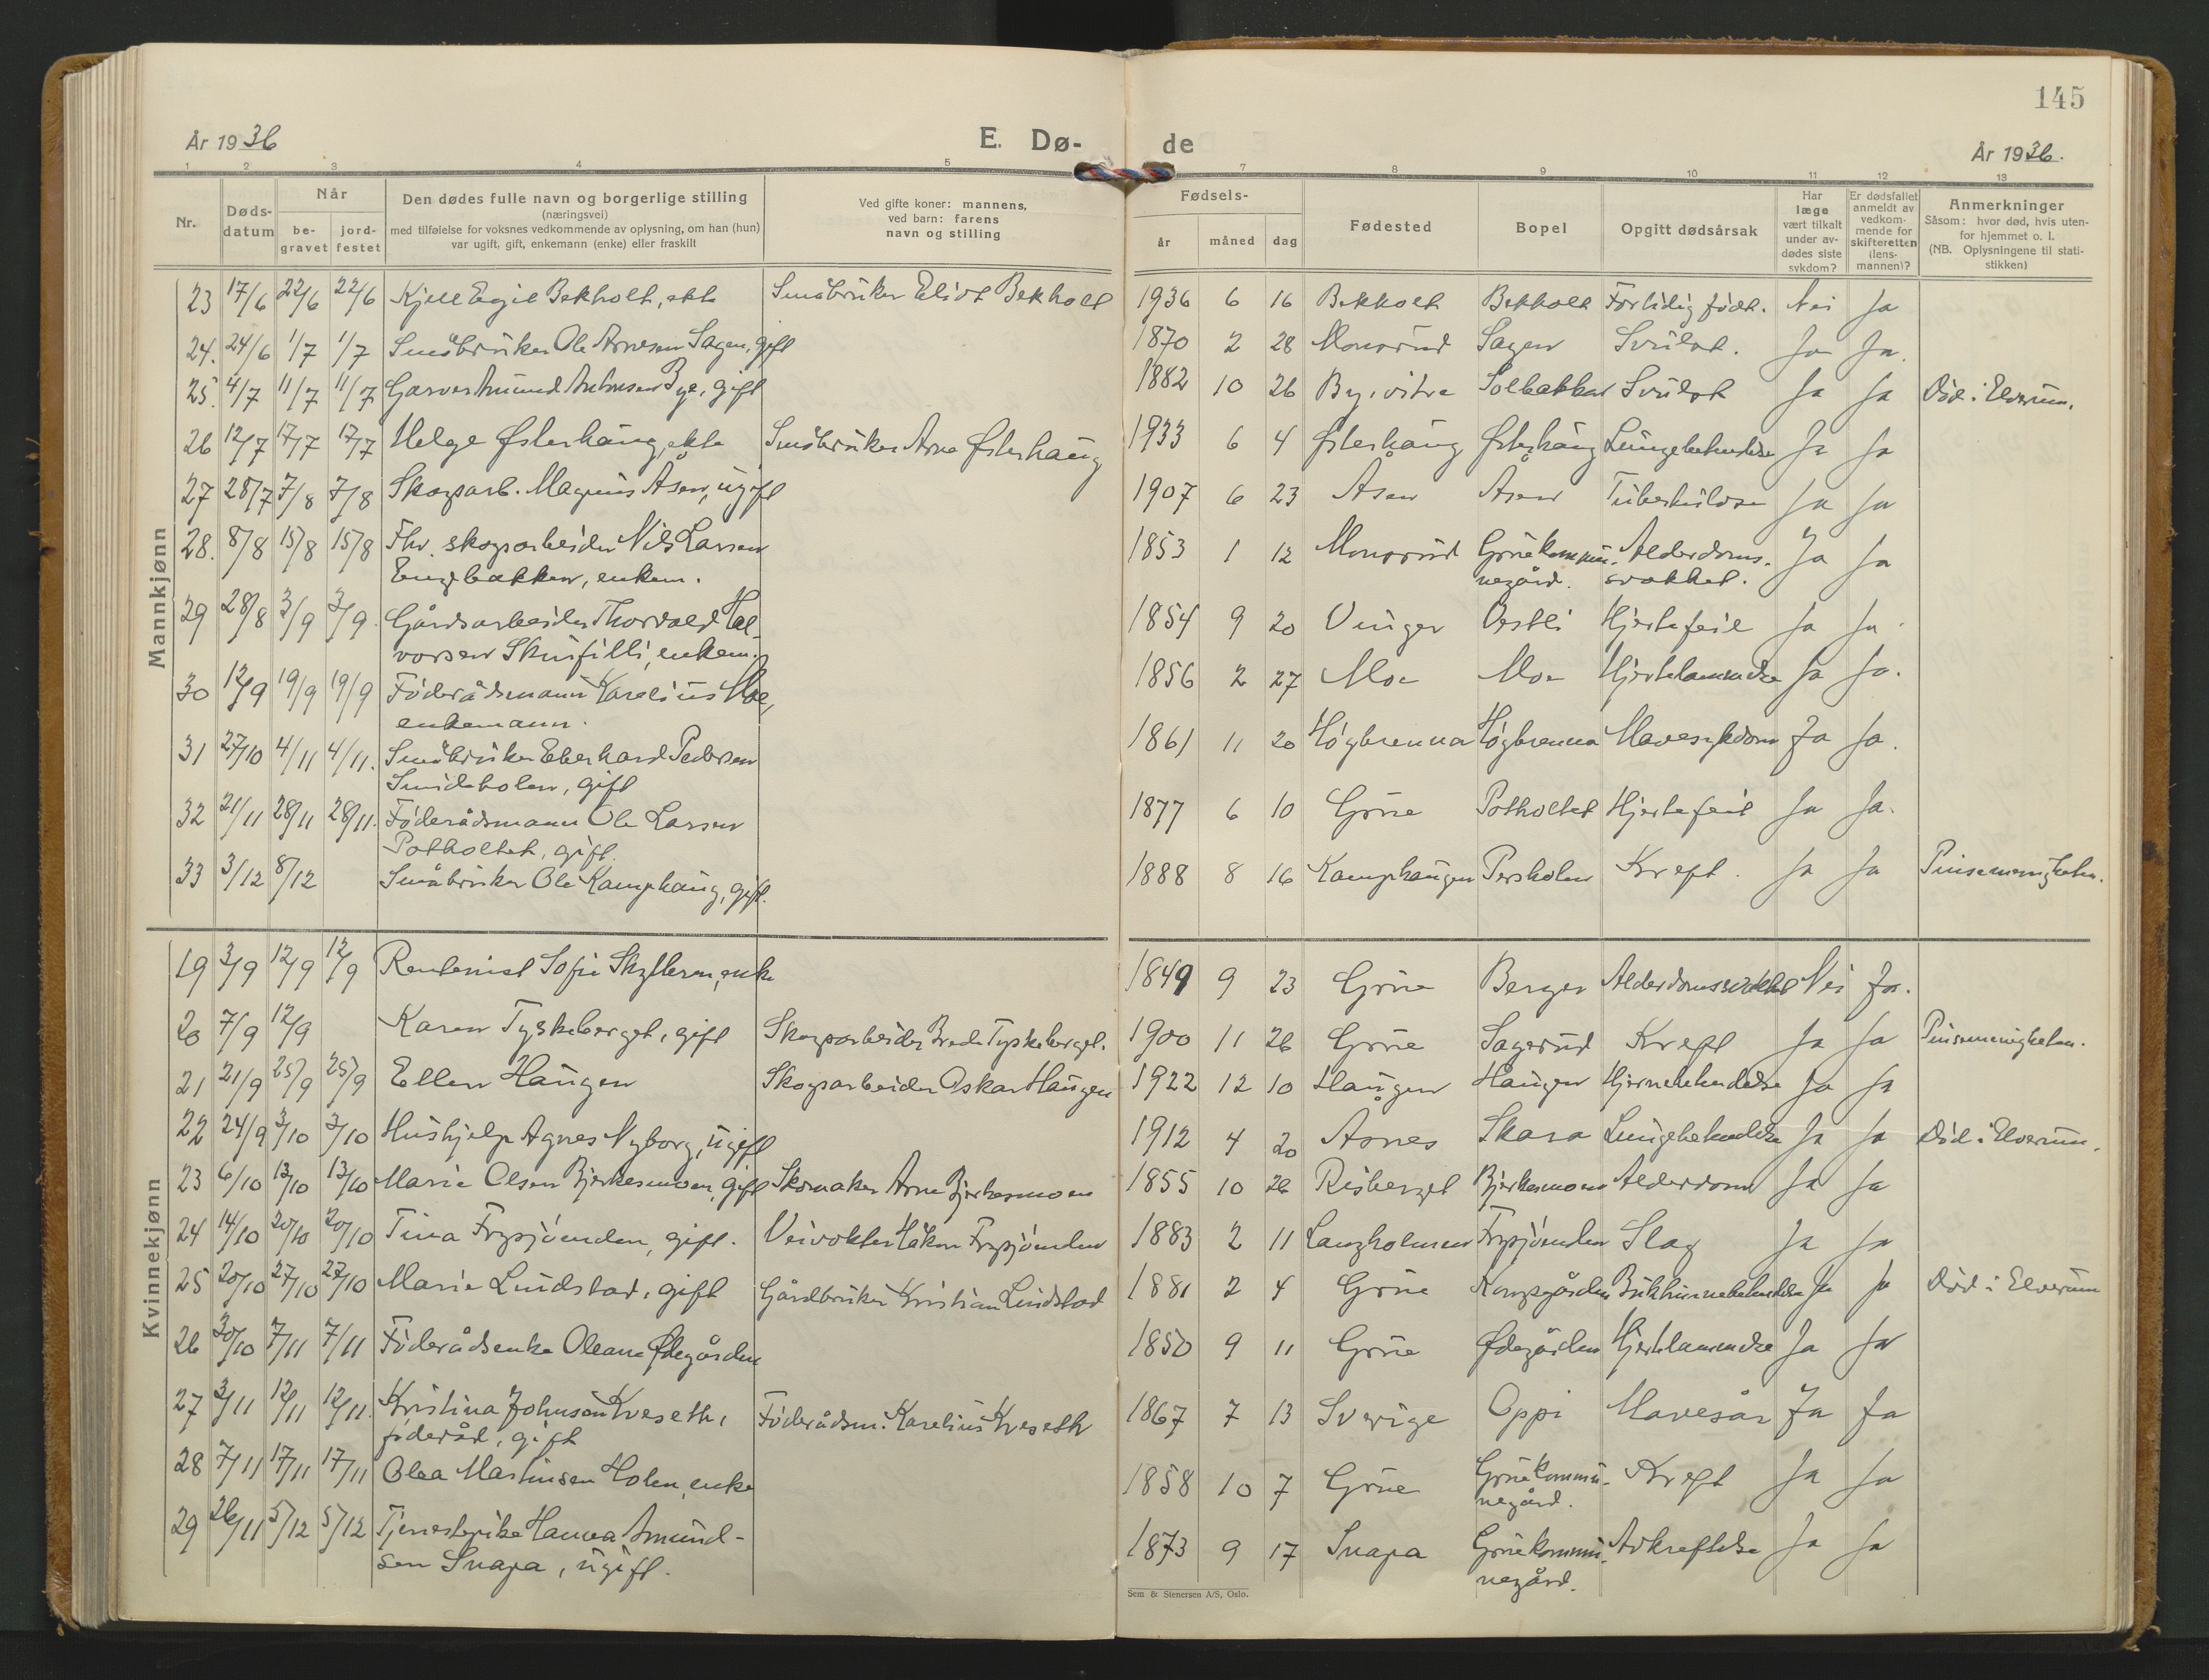 145
År 1936
E. Dø-
de
År 1936.
1 2 3 4 5 7 8 9 10 11 12 13
Nr.
Døds-
datum
Når
be-
gravet
jord-
festet
Den dødes fulle navn og borgerlige stilling
(næringsvei)
med tilføielse for voksnes vedkommende av oplysning, om han (hun)
var ugift, gift, enkemann (enke) eller fraskilt
Ved gifte koner: mannens,
ved barn: farens
navn og stilling
Fødsels-
år måned dag
Fødested
Bopel
Opgitt dødsårsak
Har
læge
vært tilkalt
under av-
dødes siste
sykdom?
Er dødsfallet
anmeldt av
vedkom-
mende for
skifteretten
(lens-
mannen)?
Anmerkninger
Såsom: hvor død, hvis uten-
for hjemmet o. l.
(NB. Oplysningene til stati-
stikken)
Mannkjønn
23 17/6 22/6 22/6 Kjell Egil Bekholt, ekte Småbruker Eliot Bekholt 1936 6 16 Bekholt Bekholt Fortidig født. Nei Ja
24. 24/6 1/7 1/7 Småbruker Ole Arnesen Sagen, gift 1870 2 28 Monsrud Sagen Svulst. Ja Ja.
25. 4/7 11/7 11/7 Garver Amund Antonsen Bye, gift 1882 10 26 By, vitre Solbakken Svulst Ja Ja Død i Elverum.
26 12/7 17/7 17/7 Helge Østerhaug, ekte Småbruker Arne Østerhaug 1933 6 4 Østerhaug Østerhaug Lungebetendelse Ja Ja
27 28/7 7/8 7/8 Skogsarb. Magnus Åsen, ugift 1907 6 23 Åsen Åsen Tuberkulose Ja Ja
28. 8/8 15/8 15/8 Fhv. skogsarbeider Nils Larsen 1853 1 12 Monsrud Grue kommu- Alderdoms- Ja Ja
Engebakken, enkem. negård. svakhet.
29 28/8 3/9 3/9. Gårdsarbeider Thorvald Hal- 1854 9 20 Vinger Vestli Hjertefeil Ja Ja
vorsen Skusfilli, enkem.
30 12/9 19/9 19/9 Føderådsmann Karelius Moe, 1856 2 27 Moe Moe Hjertelammelse Ja Ja.
enkemann.
31 27/10 4/11 4/11. Småbruker Eberhard Pedersen 1861 11 20 Høgbrenna Høgbrenna Mavesykdom Ja Ja.
Smidholen, gift
32 21/11 28/11 28/11. Føderådsmann Ole Larsen 1877 6 10 Grue Potholtet Hjertefeil Ja Ja.
Potholtet, gift.
33 3/12 8/12 Småbruker Ole Kamphaug, gift. 1888 8 16 Kamphaugen Persholen Kreft. Ja Ja Pinsemenigheten.
Kvinnekjønn
19 3/9 12/9 12/9 Rentenist Sofie Skytteren, enke 1849 9 23 Grue Berger Alderdomssvakhet Nei Ja.
20 7/9 12/9 Karen Tyskeberget, gift Skogsarbeider Brede Tyskeberget. 1900 11 26 Grue Sagerud Kreft Ja Ja Pinsemenigheten.
21 21/9 25/9 25/9 Ellen Haugen Skogsarbeider Oskar Haugen 1922 12 10 Haugen Haugen Hjernebetendelse Ja Ja
22 24/9 3/10 3/10 Hushjelp Agnes Nyborg, ugift 1912 4 20 Åsnes Skara Lungebetendelse Ja Ja Død i Elverum.
23 6/10 13/10 13/10 Marie Olsen Bjerkesmoen, gift Skomaker Arne Bjerkesmoen 1855 10 26 Risberget Bjerkesmoen Alderdom Ja Ja
24 14/10 20/10 20/10 Tina Frysjøenden, gift. Veivokter Håkon Frysjøenden 1883 2 11 Langholmen Frysjøenden Slag Ja Ja
25 20/10 27/10 27/10 Marie Lundstad, gift Gårdbruker Kristian Lundstad 1881 2 4 Grue Kongsgården Bukhinnebetendelse Ja Ja Død i Elverum
26 30/10 7/11 7/11 Føderådsenke Oleane Ødegården 1850 9 11 Grue Ødegården Hjertelammelse Ja Ja
27 3/11 12/11 12/11. Kristina Johnson Kveseth, Føderådsm. Karelius Kveseth 1867 7 13 Sverige Oppi Mavesår Ja Ja
føderåd, gift
28 7/11 17/11 17/11 Olea Martinsen Holen, enke 1858 10 7 Grue Grue kommu- Kreft Ja Ja
negård.
29 26/11 5/12 5/12 Tjenestepike Hanna Amund- 1873 9 17 Snapa Grue kommu- Avkreftelse Ja Ja
sen Snapa, ugift. negård.
Sem & Stenersen A/S, Oslo.